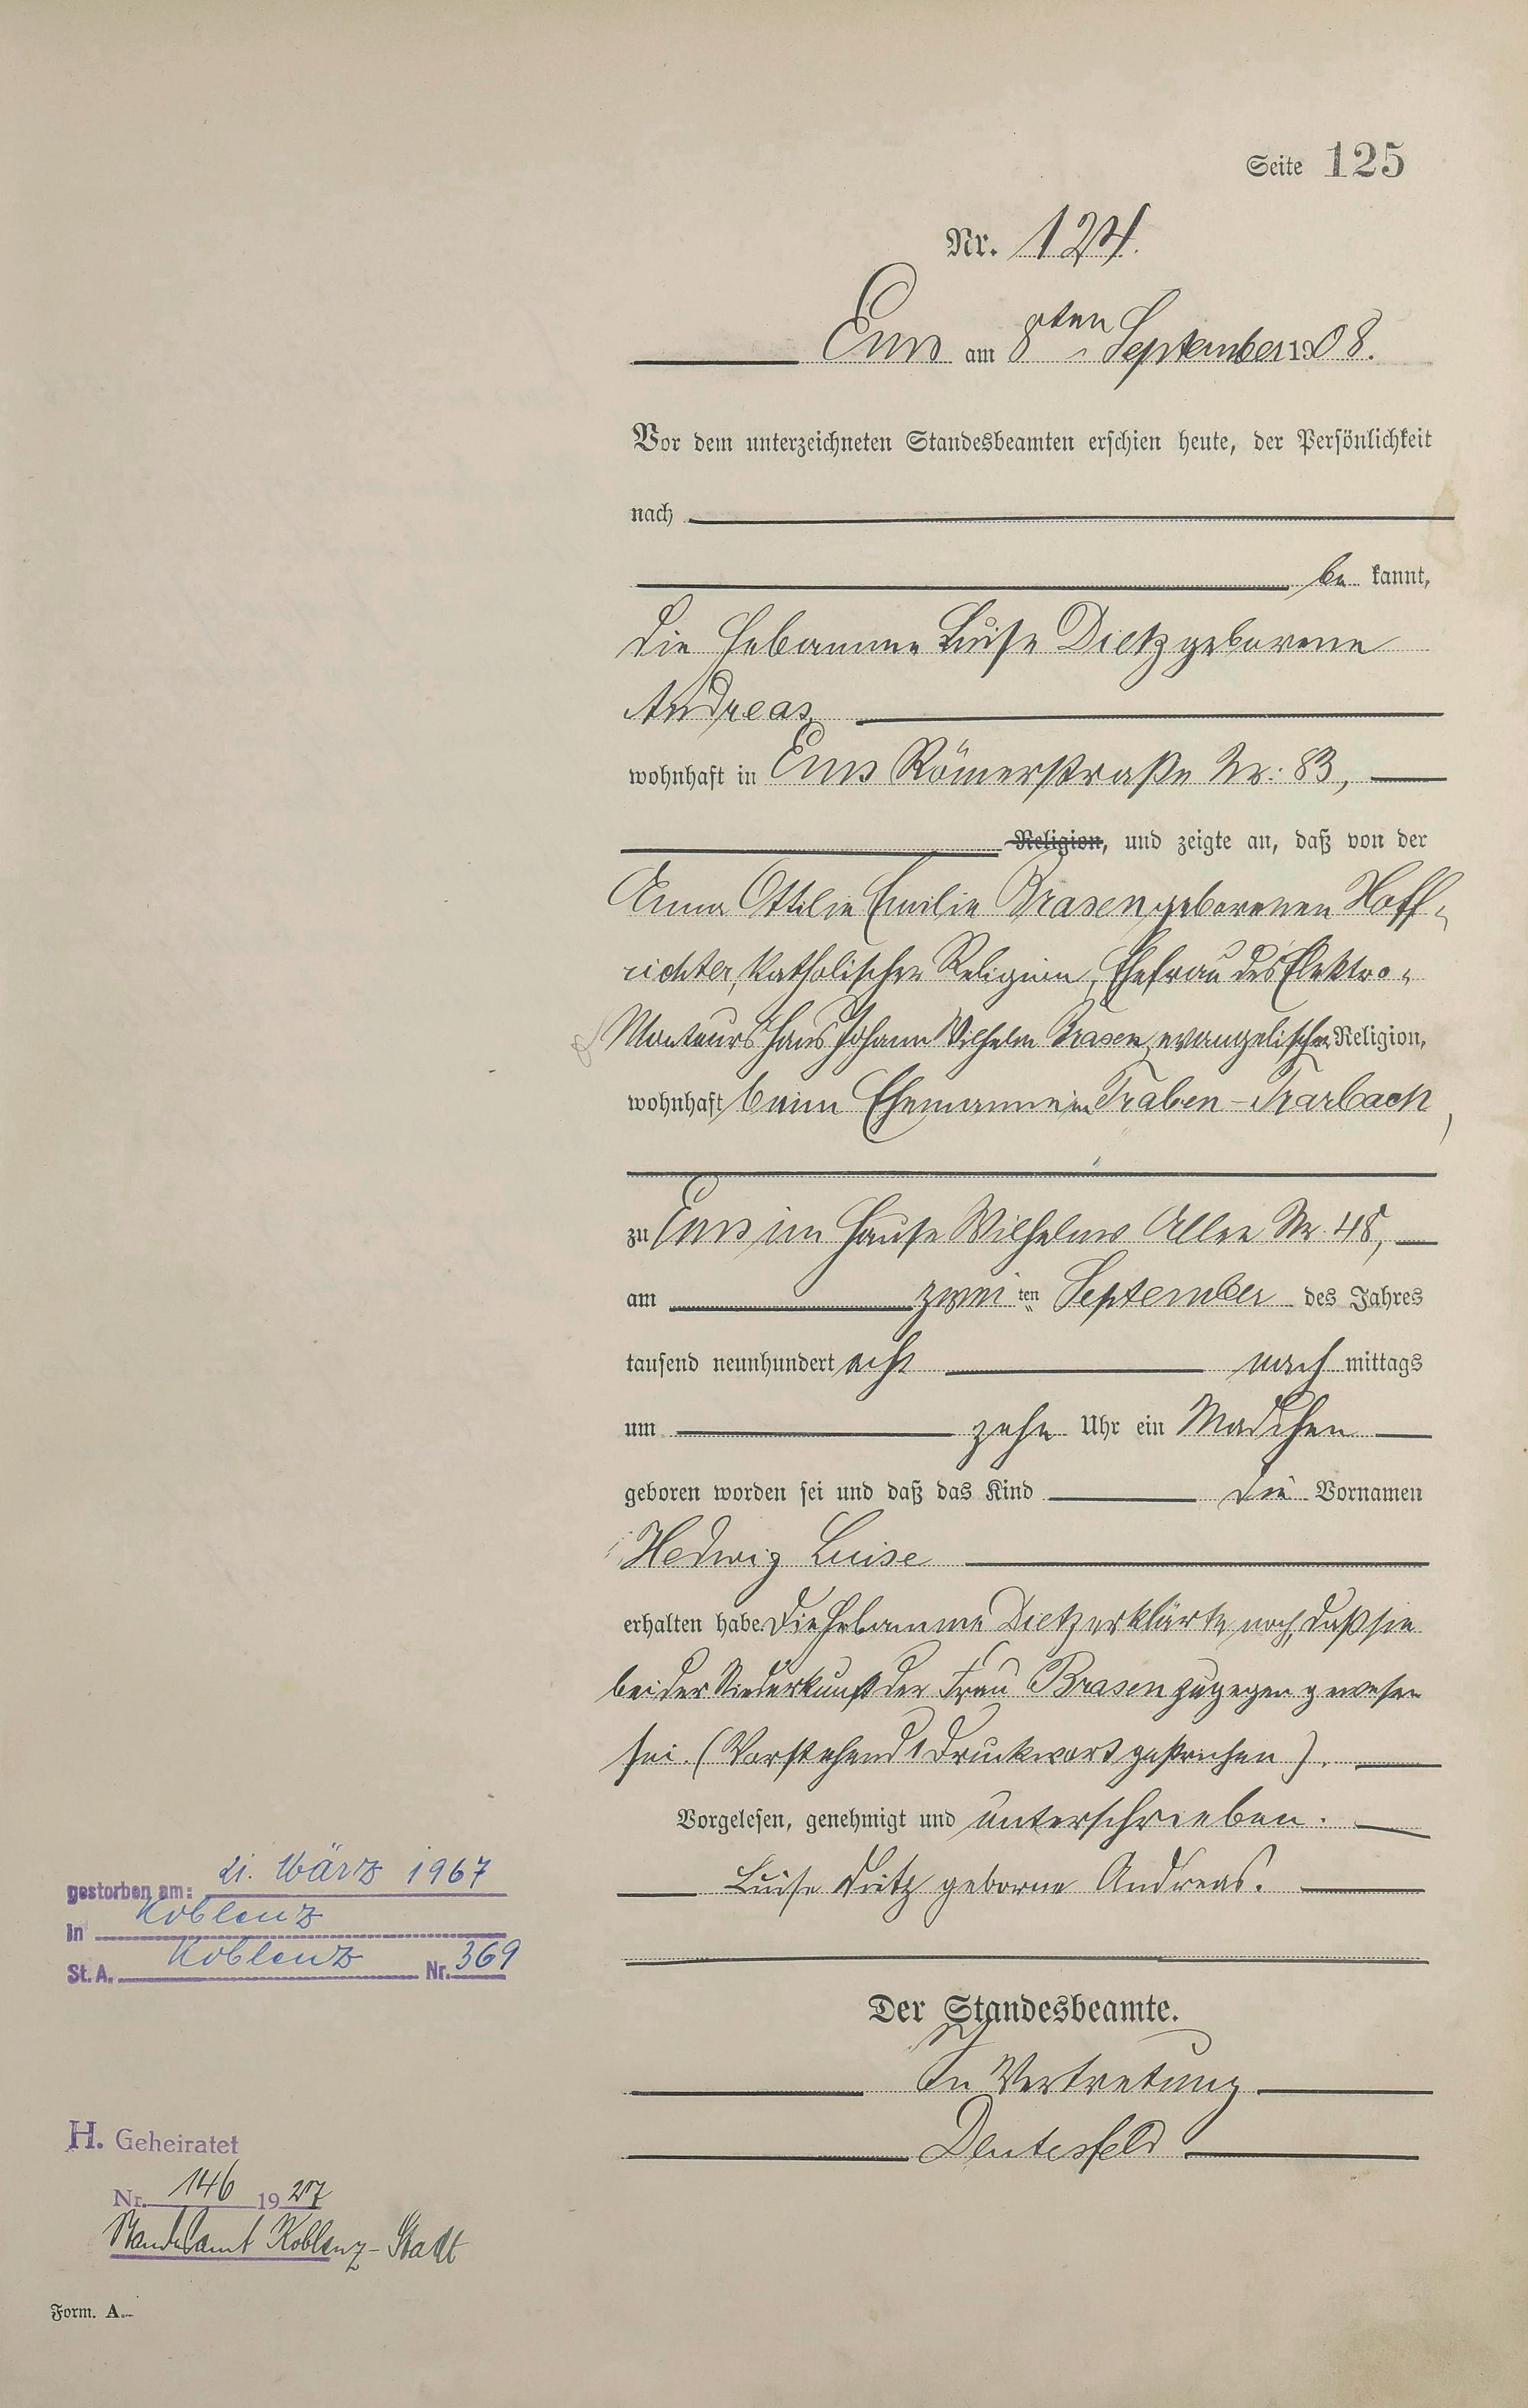 Seite 125
Nr. 124.
Ems am 8ten September 1908.
Vor dem unterzeichneten Standesbeamten erschien heute, der Persönlichkeit
nach
be kannt,
die Hebamme Luise Dietz geborene
Andreas,
wohnhaft in Ems Römerstraße Nr. 83,
Religion, und zeigte an, daß von der
Anna Ottilie Emilie Brasen geborenen Hoff-
richter, katholischer Religion, Ehefrau des Elektro-
Monteurs Hans Johann Wilhelm Brasen, evangelischer Religion,
wohnhaft beim Ehemanne in Traben-Trarbach,
zu Ems im Hause Wilhelms Allee Nr. 48,
am zwei ten September des Jahres
tausend neunhundert acht nach mittags
um zehn Uhr ein Mädchen
geboren worden sei und daß das Kind die Vornamen
Hedwig Luise
erhalten habe. Die Hebamme Dietz erklärte noch, daß sie
bei der Niederkunft der Frau Brasen zugegen gewesen
sei. (Vorstehend 1 Druckwort gestrichen).
Vorgelesen, genehmigt und unterschrieben.
Luise Dietz geborne Andreas.
Der Standesbeamte.
In Vertretung
gestorben am: 21. März 1967
in Koblenz
St. A. Koblenz Nr. 369
H. Geheiratet
Nr. 146 1927
Standesamt Koblenz-Stadt
Form. A.